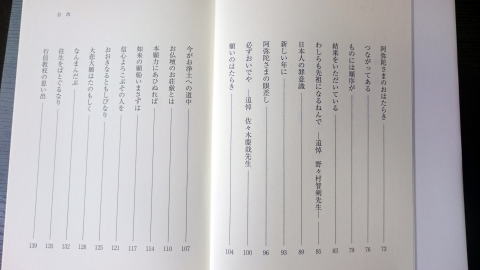 阿弥陀さまのおはたらき 73
つながってある 76
ものには順序が 79
結果をいただいている 83
わしらも先祖になるねんで ―追悼 野々村智剣先生― 85
日本人の罪意識 89
新しい年に 93
阿弥陀さまの眼差し 96
必ずおいでや ―追悼 佐々木慶哉先生― 100
願いのはたらき 104
目次
今がお浄土への道中 107
お仏壇のお荘厳とは 110
本願力にあひぬれば 114
如来の願船いまさずは 117
信心よろこぶその人を 121
おおきなるともしびなり 125
大悲大願はたのもしく 128
なんまんだぶ 132
往生をばとぐるなり 135
行信教校の思い出 139